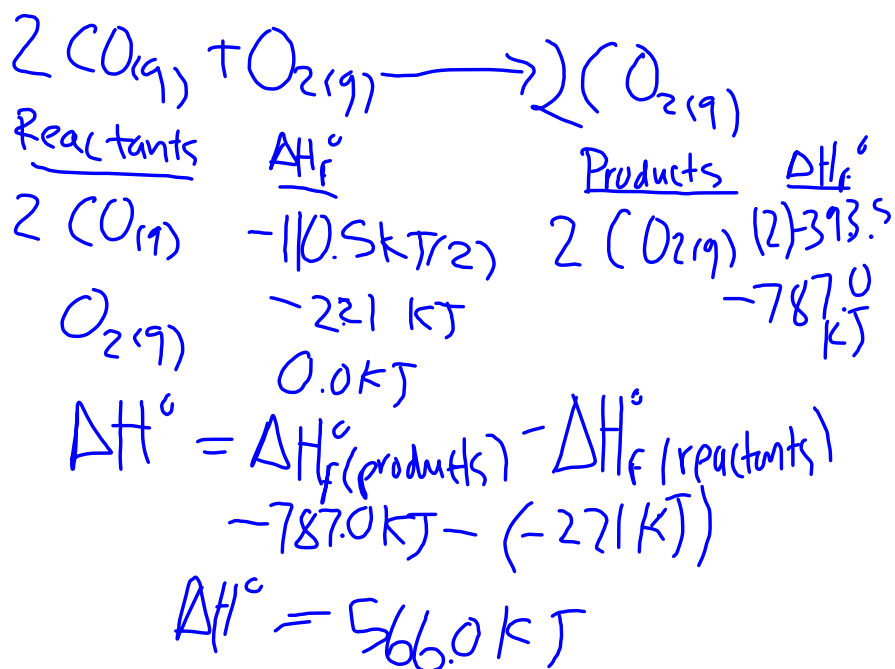 2 CO(g) + O2(g) ⟶ 2CO2(g)
Reactants ΔHf° Products ΔHf°
2 CO(g) -110.5kJ(2) 2 CO2(g) (2)-393.5
-221 kJ -787.0 kJ
O2(g) 0.0kJ
ΔH° = ΔHf°(products) - ΔHf°(reactants)
-787.0kJ - (-221kJ)
ΔH° = 566.0 kJ